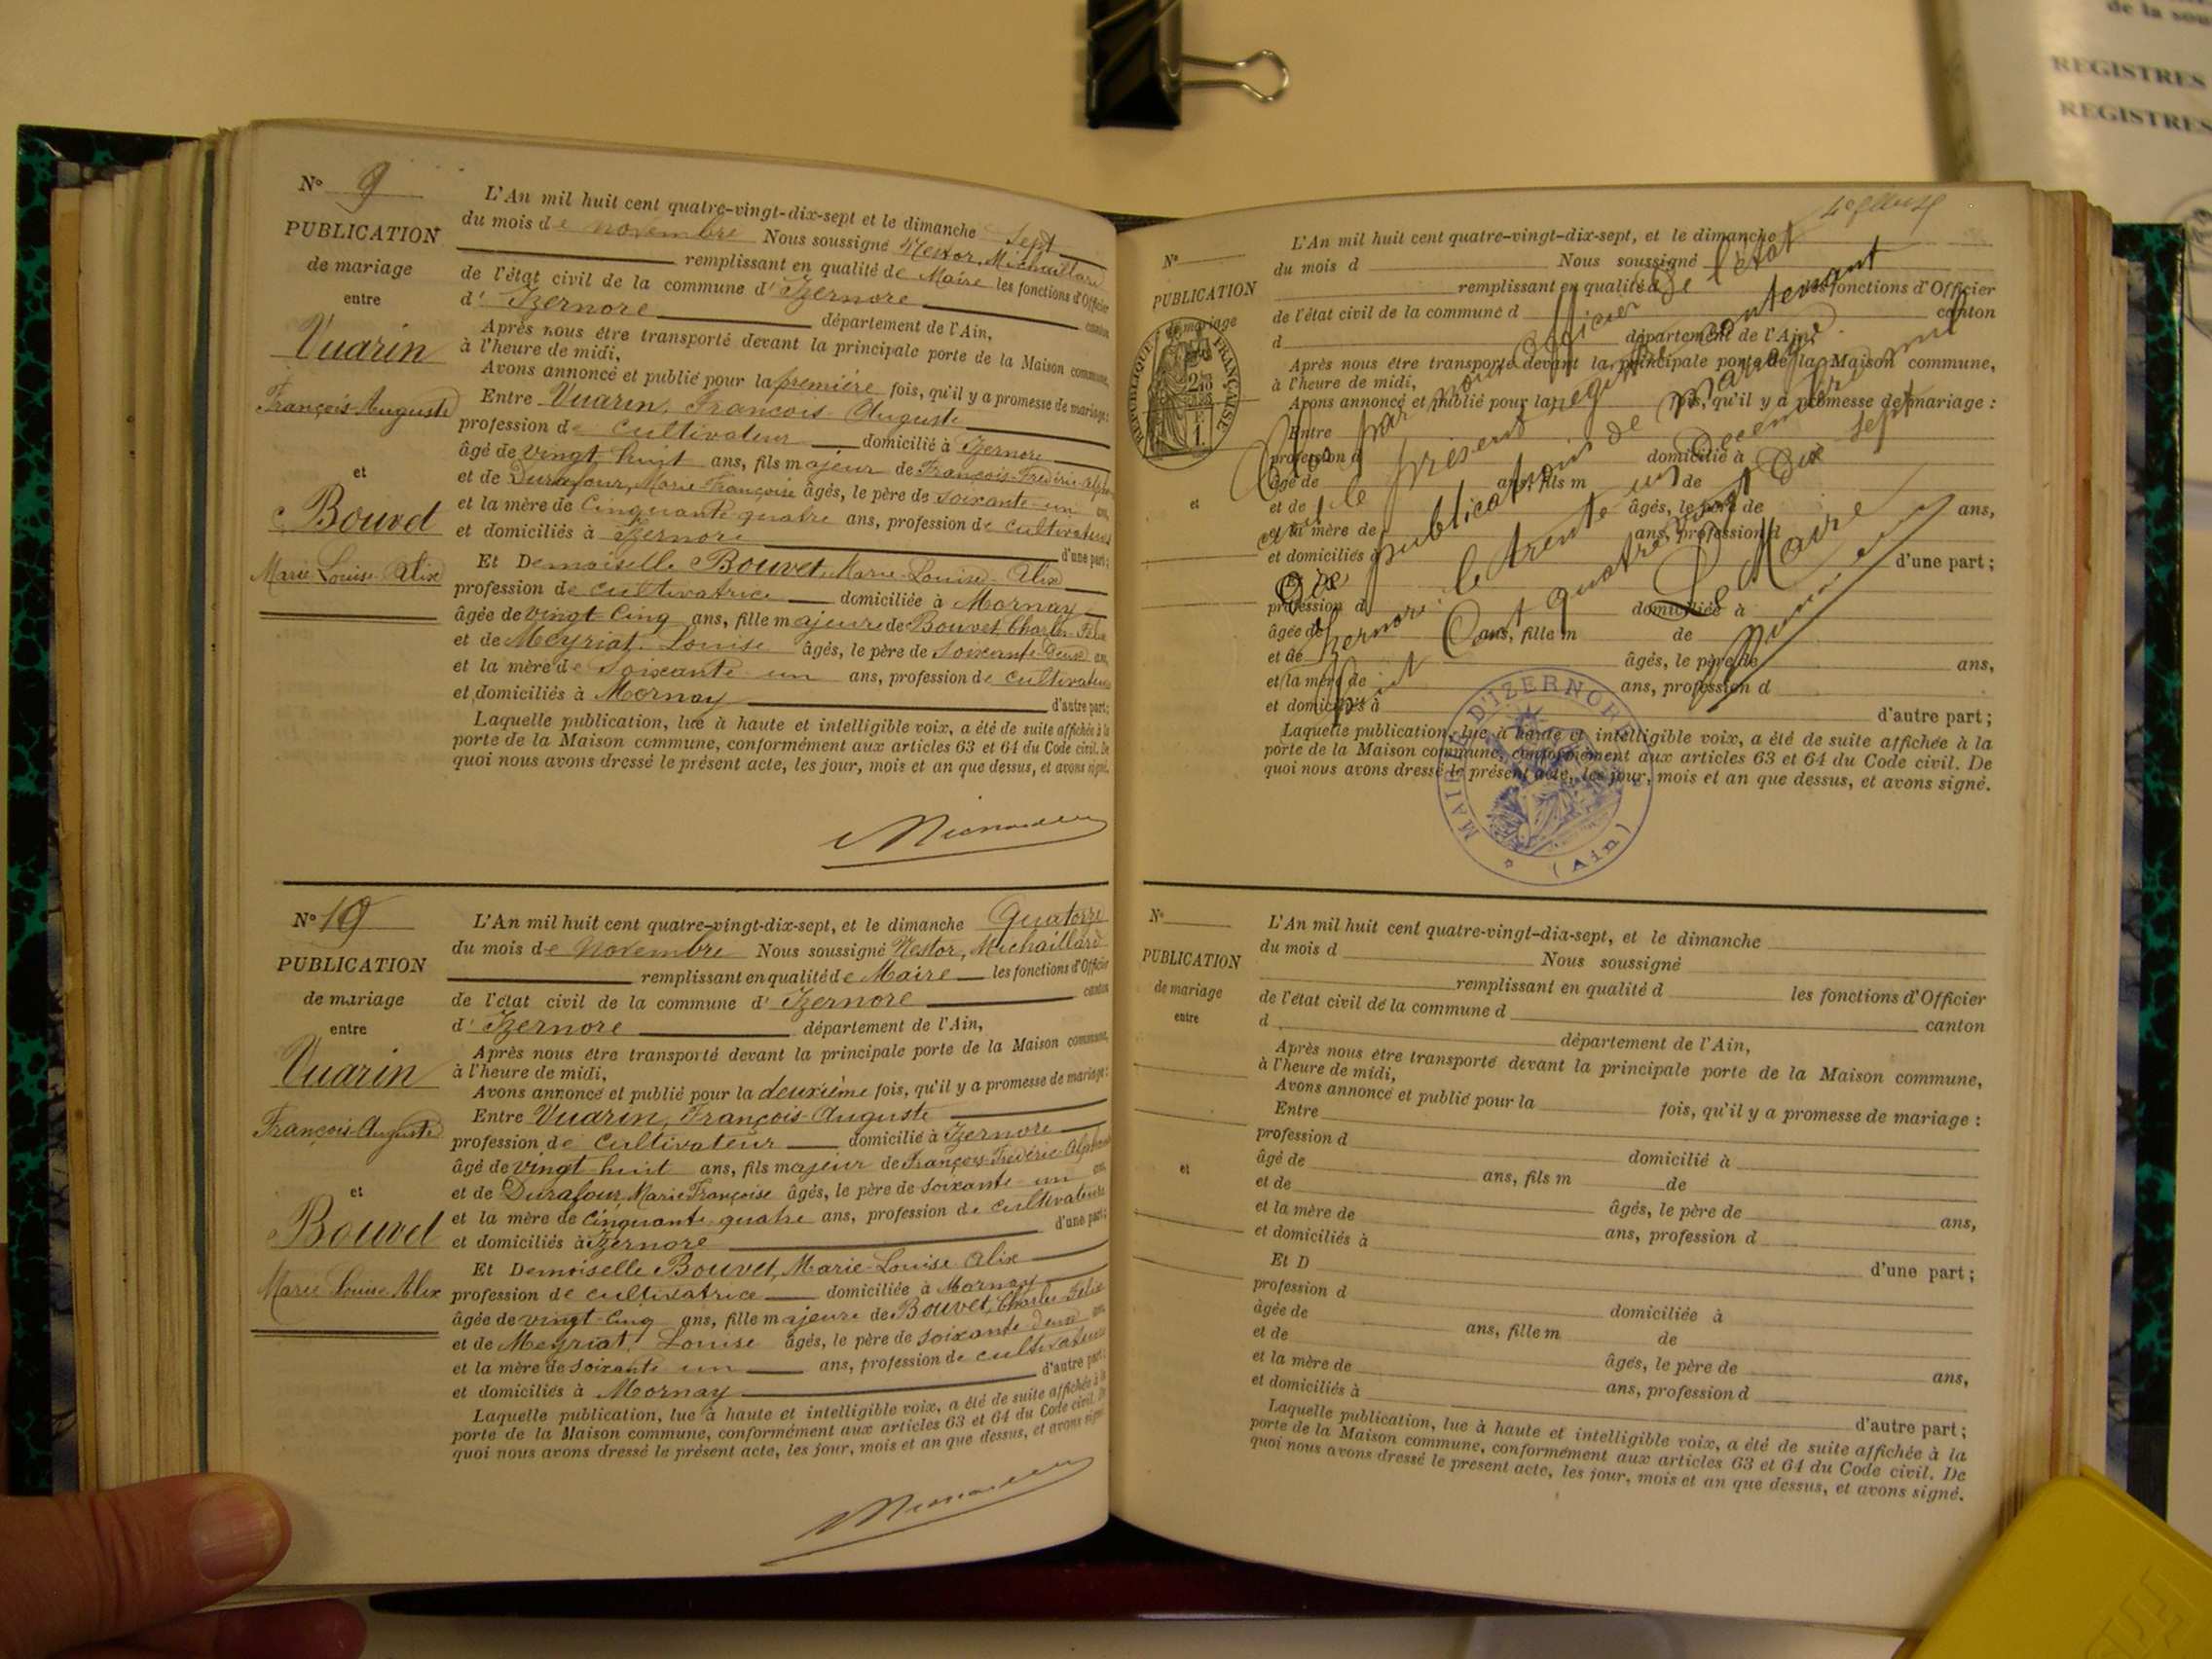 de la sou
REGISTRES
REGISTRES
N° 9
PUBLICATION
de mariage
entre
Vuarin
François Auguste
et
Bouvet
Marie Louise Alix
L'An mil huit cent quatre-vingt-dix-sept et le dimanche sept
du mois de novembre Nous soussigné Nestor, Michaillard
remplissant en qualité de Maire les fonctions d'Officier
de l'état civil de la commune d'Izernore canton
d'Izernore département de l'Ain,
Après nous être transporté devant la principale porte de la Maison commune,
à l'heure de midi,
Avons annoncé et publié pour la première fois, qu'il y a promesse de mariage:
Entre Vuarin, François Auguste
profession de cultivateur domicilié à Izernore
âgé de vingt huit ans, fils majeur de François-Frédéric
et de Durafour, Marie Françoise âgés, le père de soixante-un ans,
et la mère de cinquante quatre ans, profession de cultivateurs
et domiciliés à Izernore d'une part;
Et Demoiselle Bouvet, Marie-Louise-Alix
profession de cultivatrice domiciliée à Mornay
âgée de vingt cinq ans, fille majeure de Bouvet Charles Félix
et de Meyriat, Louise âgés, le père de soixante-deux ans,
et la mère de soixante un ans, profession de cultivateurs
et domiciliés à Mornay d'autre part;
Laquelle publication, lue à haute et intelligible voix, a été de suite affichée à la
porte de la Maison commune, conformément aux articles 63 et 64 du Code civil. De
quoi nous avons dressé le présent acte, les jour, mois et an que dessus, et avons signé.
N° 10
PUBLICATION
de mariage
entre
Vuarin
François-Auguste
et
Bouvet
Marie Louise Alix
L'An mil huit cent quatre-vingt-dix-sept, et le dimanche Quatorze
du mois de Novembre Nous soussigné Nestor, Michaillard
remplissant en qualité de Maire les fonctions d'Officier
de l'état civil de la commune d'Izernore canton
d'Izernore département de l'Ain,
Après nous être transporté devant la principale porte de la Maison commune,
à l'heure de midi,
Avons annoncé et publié pour la deuxième fois, qu'il y a promesse de mariage:
Entre Vuarin, François-Auguste
profession de cultivateur domicilié à Izernore
âgé de vingt-huit ans, fils majeur de François-Frédéric Alphonse
et de Durafour, Marie Françoise âgés, le père de soixante-un ans,
et la mère de cinquante quatre ans, profession de cultivateurs
et domiciliés à Izernore d'une part;
Et Demoiselle Bouvet, Marie-Louise Alix
profession de cultivatrice domiciliée à Mornay
âgée de vingt-cinq ans, fille majeure de Bouvet, Charles Félix
et de Meyriat, Louise âgés, le père de soixante-deux ans,
et la mère de soixante un ans, profession de cultivateurs
et domiciliés à Mornay d'autre part;
Laquelle publication, lue à haute et intelligible voix, a été de suite affichée à la
porte de la Maison commune, conformément aux articles 63 et 64 du Code civil. De
quoi nous avons dressé le présent acte, les jour, mois et an que dessus, et avons signé.
N°
PUBLICATION
de mariage
RÉPUBLIQUE FRANÇAISE
et
L'An mil huit cent quatre-vingt-dix-sept, et le dimanche
du mois d Nous soussigné
remplissant en qualité d les fonctions d'Officier
de l'état civil de la commune d canton
d département de l'Ain,
Après nous être transporté devant la principale porte de la Maison commune,
à l'heure de midi,
Avons annoncé et publié pour la fois, qu'il y a promesse de mariage :
Entre
profession d domicilié à
âgé de ans, fils m de
et de âgés, le père de ans,
et la mère de ans, profession d
et domiciliés à d'une part;
Et D
profession d domiciliée à
âgée de ans, fille m de
et de âgés, le père de ans,
et la mère de ans, profession d
et domiciliés à d'autre part;
Laquelle publication, lue à haute et intelligible voix, a été de suite affichée à la
porte de la Maison commune, conformément aux articles 63 et 64 du Code civil. De
quoi nous avons dressé le présent acte, les jour, mois et an que dessus, et avons signé.
Clos par nous officier de l'état
civil le présent registre contenant
Dix publications de mariage.
Izernore le trente un Décembre mil
huit Cent quatre vingt Dix sept
Le Maire
MAIRIE D'IZERNORE
(Ain)
N°
PUBLICATION
de mariage
entre
et
L'An mil huit cent quatre-vingt-dix-sept, et le dimanche
du mois d Nous soussigné
remplissant en qualité d les fonctions d'Officier
de l'état civil de la commune d canton
d département de l'Ain,
Après nous être transporté devant la principale porte de la Maison commune,
à l'heure de midi,
Avons annoncé et publié pour la fois, qu'il y a promesse de mariage :
Entre
profession d domicilié à
âgé de ans, fils m de
et de âgés, le père de ans,
et la mère de ans, profession d
et domiciliés à d'une part;
Et D
profession d domiciliée à
âgée de ans, fille m de
et de âgés, le père de ans,
et la mère de ans, profession d
et domiciliés à d'autre part;
Laquelle publication, lue à haute et intelligible voix, a été de suite affichée à la
porte de la Maison commune, conformément aux articles 63 et 64 du Code civil. De
quoi nous avons dressé le présent acte, les jour, mois et an que dessus, et avons signé.